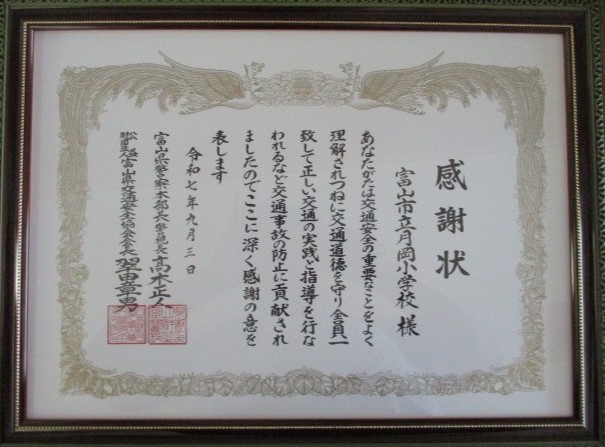 感謝状
富山市立月岡小学校 様
あなたがたは交通安全の重要なことをよく
理解されつねに交通道徳を守り全員一
致して正しい交通の実践と指導を行な
われるなど交通事故の防止に貢献され
ましたのでここに深く感謝の意を
表します
令和七年九月三日
富山県警察本部長警視長高木正人
富山県交通安全協会会長